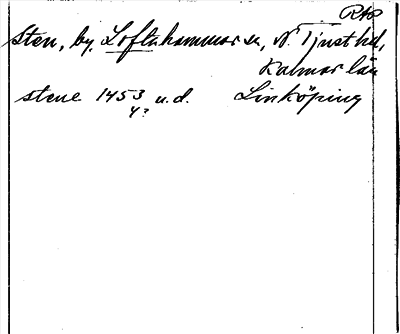 RAp
Sten, by, Loftahammar sn, N. Tjust hd,
Kalmar län
stene 1453 u.d. Linköping
4?